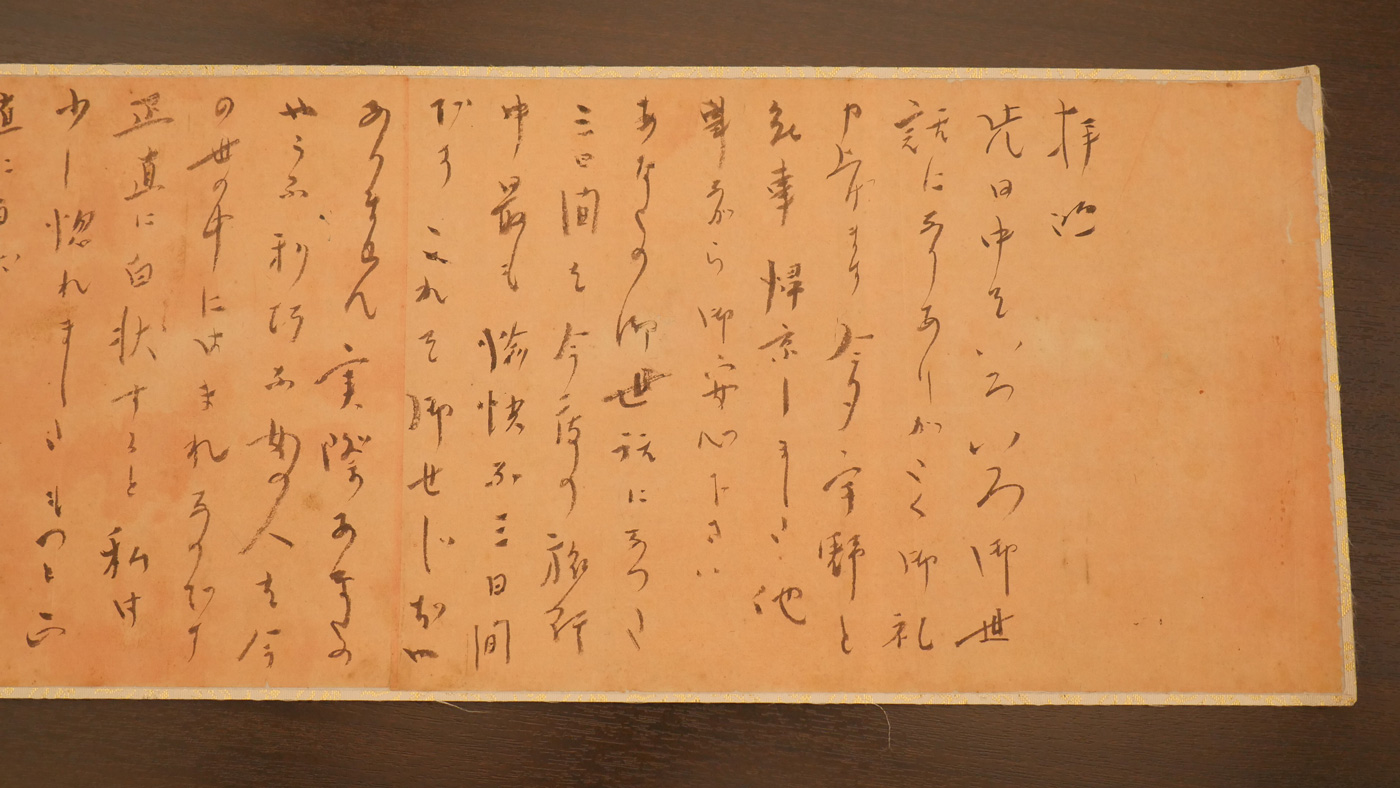 拝啓
先日中はいろいろ御世
話になりありがたく御礼
申上げます 今夕宇野と
発車 帰京しました 他
事ながら御安心下さい
あなたの御世話になつた
三日間は今度の旅行
中最も愉快な三日間
です これは御せじぢや
ありません 実際あなたの
やうな利巧な女の人は今
の世の中にはまれなのです
正直に白状すると私は
少し惚れました もつと正
直に白